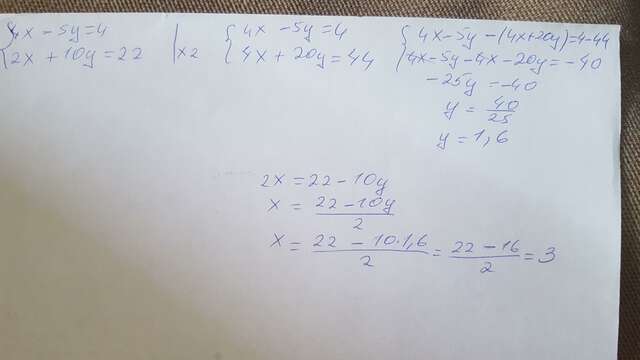 4x - 5y = 4
2x + 10y = 22 | x2
4x - 5y = 4
4x + 20y = 44
4x - 5y - (4x + 20y) = 4 - 44
4x - 5y - 4x - 20y = -40
-25y = -40
y = 40/25
y = 1,6
2x = 22 - 10y
x = (22 - 10y)/2
x = (22 - 10·1,6)/2 = (22 - 16)/2 = 3